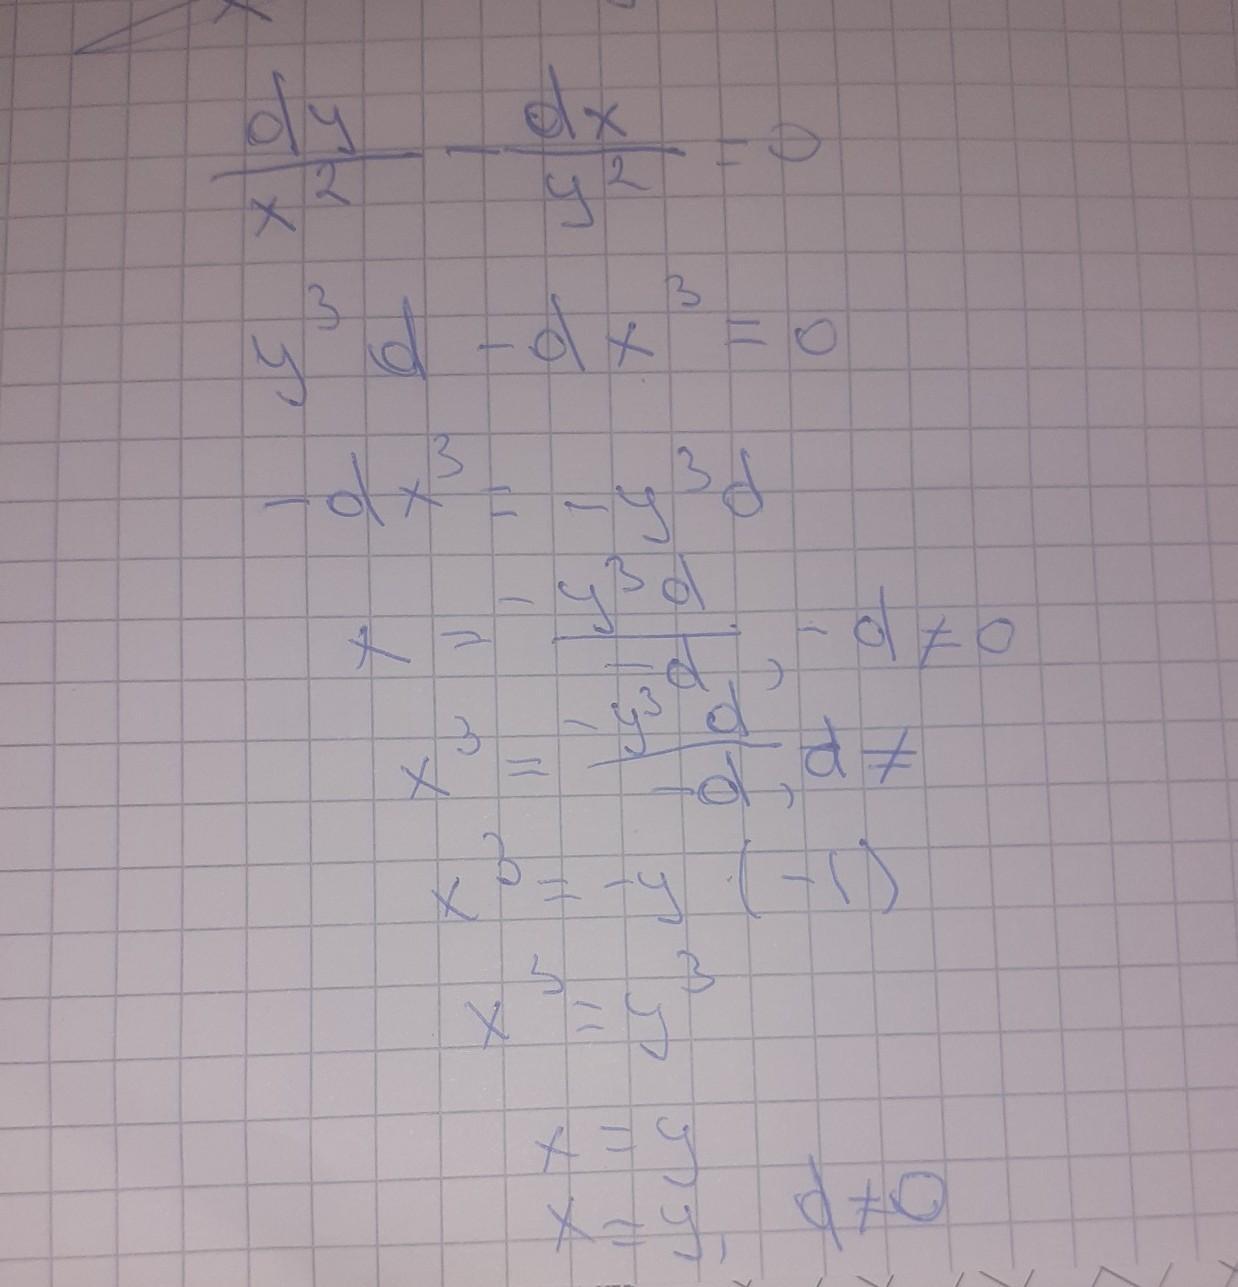 dy/x² - dx/y² = 0
y³d - dx³ = 0
-dx³ = -y³d
x = -y³d/-d, -d ≠ 0
x³ = -y³d/-d, d ≠
x³ = -y · (-1)
x³ = y³
x = y
x = y, d ≠ 0